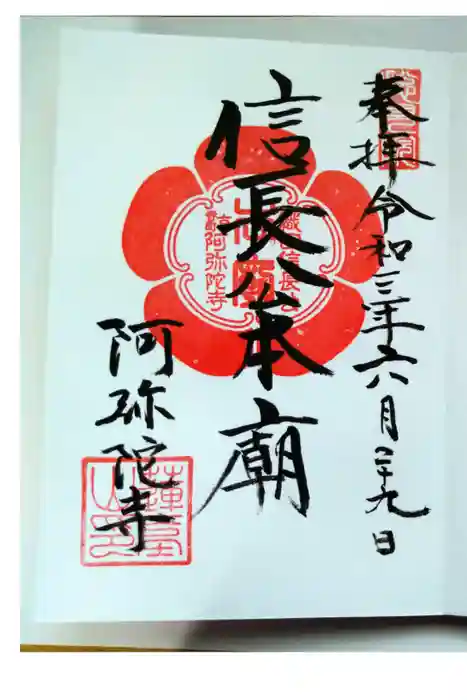 奉拝 令和三年六月二十九日
信長公本廟
織田信長公
阿弥陀寺
阿弥陀寺